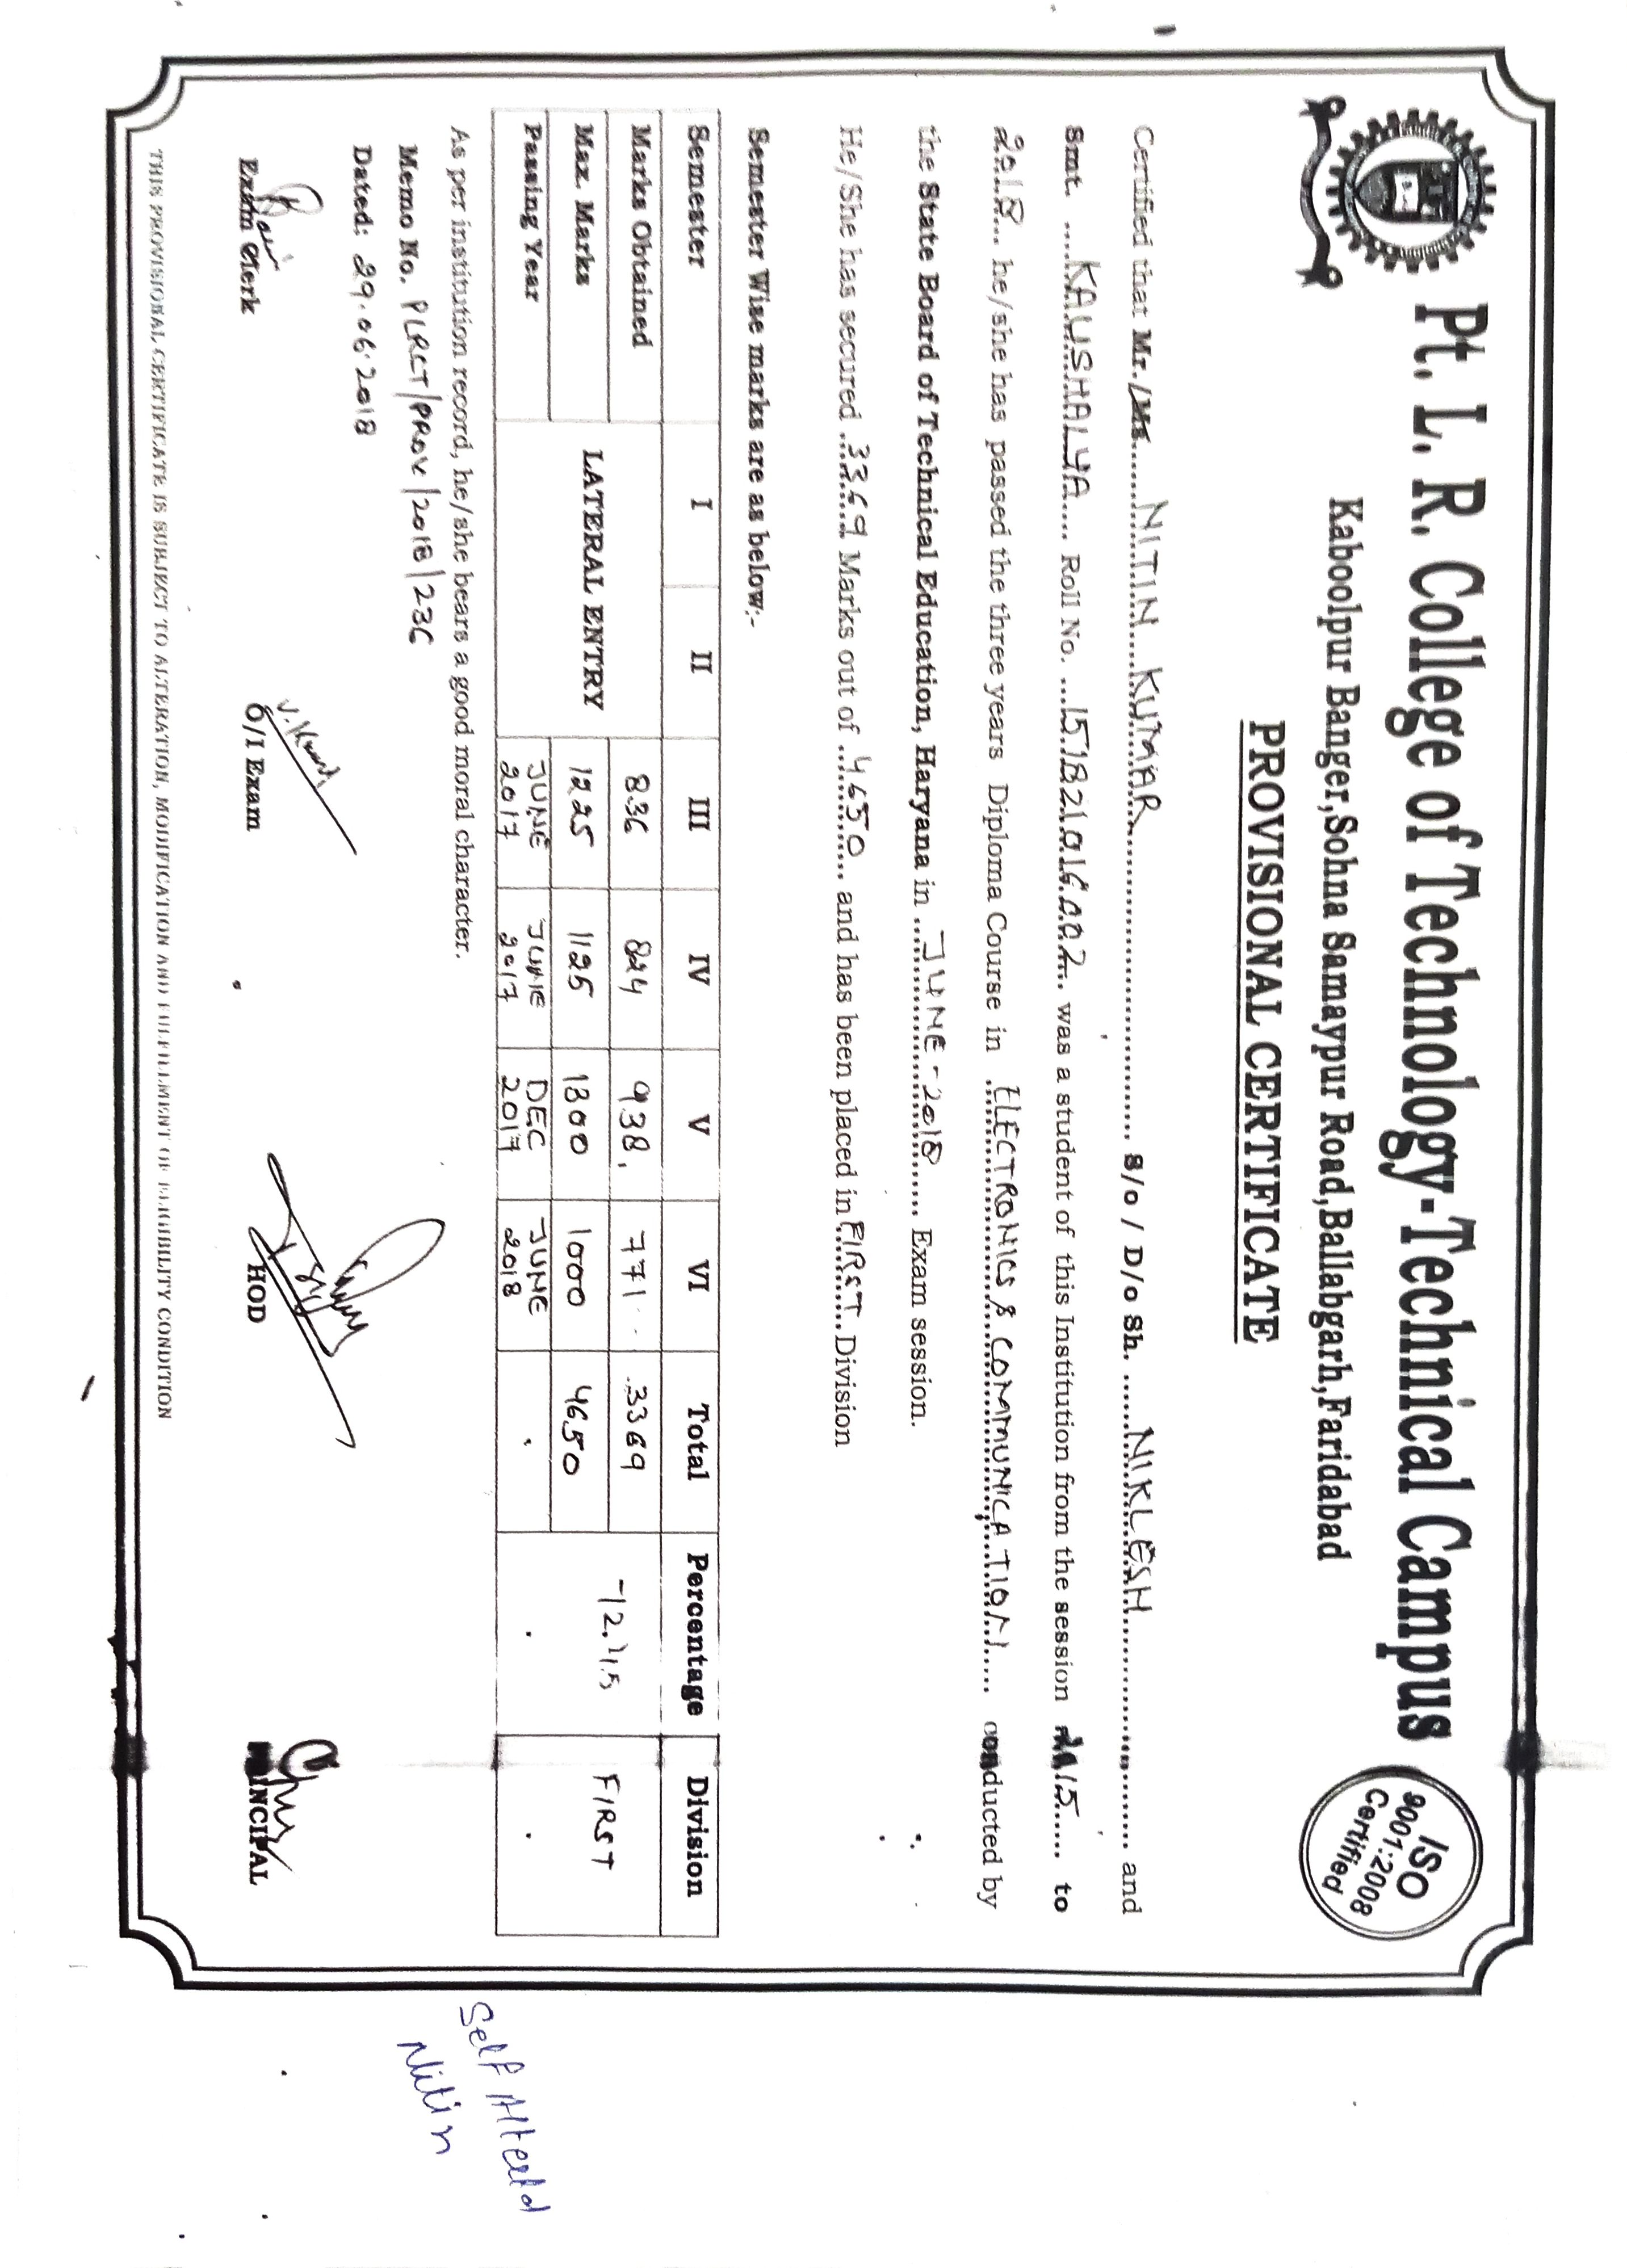 Pt. L. R. College of Technology-Technical Campus
ISO
9001:2008
Certified
Kaboolpur Banger,Sohna Samaypur Road,Ballabgarh,Faridabad
PROVISIONAL CERTIFICATE
Certified that Mr./Ms. NITIN KUMAR S/o / D/o Sh. NIKLESH and
Smt. KAUSHALYA Roll No. 151821016002 was a student of this Institution from the session 2015 to
2018 he/she has passed the three years Diploma Course in ELECTRONICS & COMMUNICATION conducted by
the State Board of Technical Education, Haryana in JUNE-2018 Exam session.
He/She has secured 3369 Marks out of 4650 and has been placed in FIRST Division
Semester Wise marks are as below:-
Semester I II III IV V VI Total Percentage Division
Marks Obtained LATERAL ENTRY 836 824 938 771 3369 FIRST
Max. Marks 1225 1125 1300 1000 4650
Passing Year JUNE 2017 JUNE 2017 DEC 2017 JUNE 2018
As per institution record, he/she bears a good moral character.
Memo No. PLRCT/PROV/2018/236
Dated: 29.06.2018
Exam Clerk O/I Exam HOD PRINCIPAL
THIS PROVISIONAL CERTIFICATE IS SUBJECT TO ALTERATION, MODIFICATION AND FULFILLMENT OF ELIGIBILITY CONDITION
Self Atteeld
Nitin